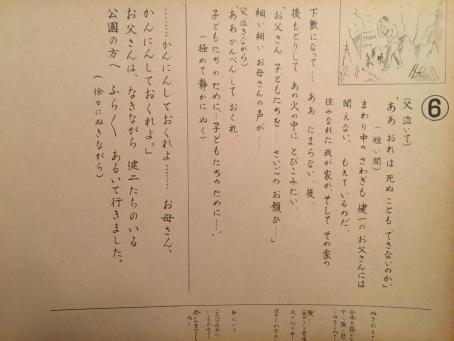 ⑥
(父 泣いて)
「ああ おれは 死ぬ ことも できないのか」
(短い間)
まわり中の さわぎも 健一の お父さんには
聞えない。もえているのだ。
住みなれた 我が家が、そして その家の
下敷になって…… ああ たまらない 後、
後もどりして あの火の中に とびこみたい。
「お父さん 子どもたちを…… さいごの お願ひ……」
細い 細い お母さんの 声が……
(父泣きながら)
「ああ かんべんして おくれ、
子どもたちの ために…… 子どもたちの ために……」
(極めて 静かに ぬく)
………かんにんしておくれよ……… お母さん、
かんにんしておくれよ。」
お父さんは、なきながら 健二たちのいる
公園の方へ ふらふら あるいて行きました。
(徐々にぬきながら)